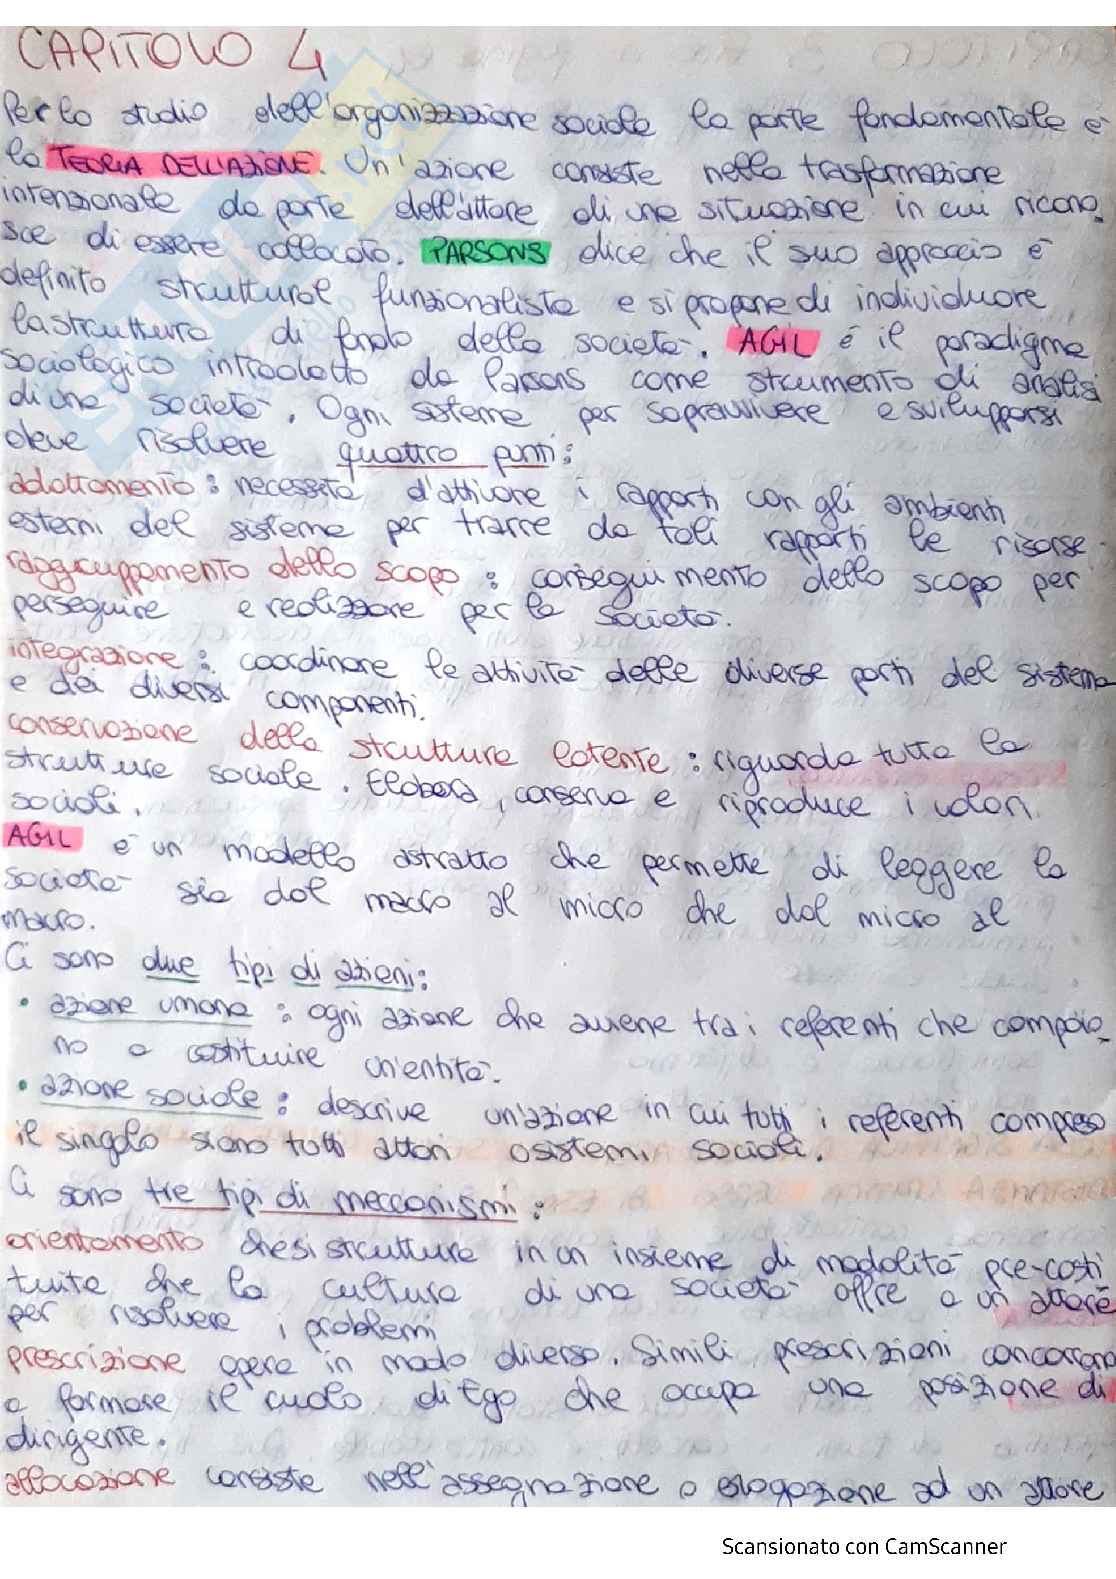 CAPITOLO 4
Per lo studio dell'organizzazione sociale la parte fondamentale è
la TEORIA DELL'AZIONE. Un'azione consiste nella trasformazione
intenzionale da parte dell'attore di una situazione in cui ricono_
sce di essere collocato. PARSONS dice che il suo approccio è
definito struttural funzionalista e si propone di individuare
la struttura di fondo della società. AGIL è il paradigma
sociologico introdotto da Parsons come strumento di analisi
di una società. Ogni sistema per sopravvivere e svilupparsi
deve risolvere quattro punti:
adattamento: necessità d'attivare i rapporti con gli ambienti
esterni del sistema per trarre da tali rapporti le risorse.
raggruppamento dello scopo: conseguimento dello scopo per
perseguire e realizzare per la società.
integrazione: coordinare le attività delle diverse parti del sistema
e dei diversi componenti.
conservazione della struttura latente: riguarda tutta la
struttura sociale. Elabora, conserva e riproduce i valori
sociali.
AGIL è un modello astratto che permette di leggere la
società sia dal macro al micro che dal micro al
macro.
Ci sono due tipi di azioni:
• azione umana: ogni azione che avviene tra i referenti che compaio_
no a costituire un'entità.
• azione sociale: descrive un'azione in cui tutti i referenti compreso
il singolo siano tutti attori o sistemi sociali.
Ci sono tre tipi di meccanismi:
orientamento che si struttura in un insieme di modalità pre-costi
tuite che la cultura di una società offre a un attore
per risolvere i problemi
prescrizione opera in modo diverso. Simili prescrizioni concorrono
a formare il ruolo di Ego che occupa una posizione di
dirigente.
allocazione consiste nell'assegnazione o erogazione ad un attore
Scansionato con CamScanner